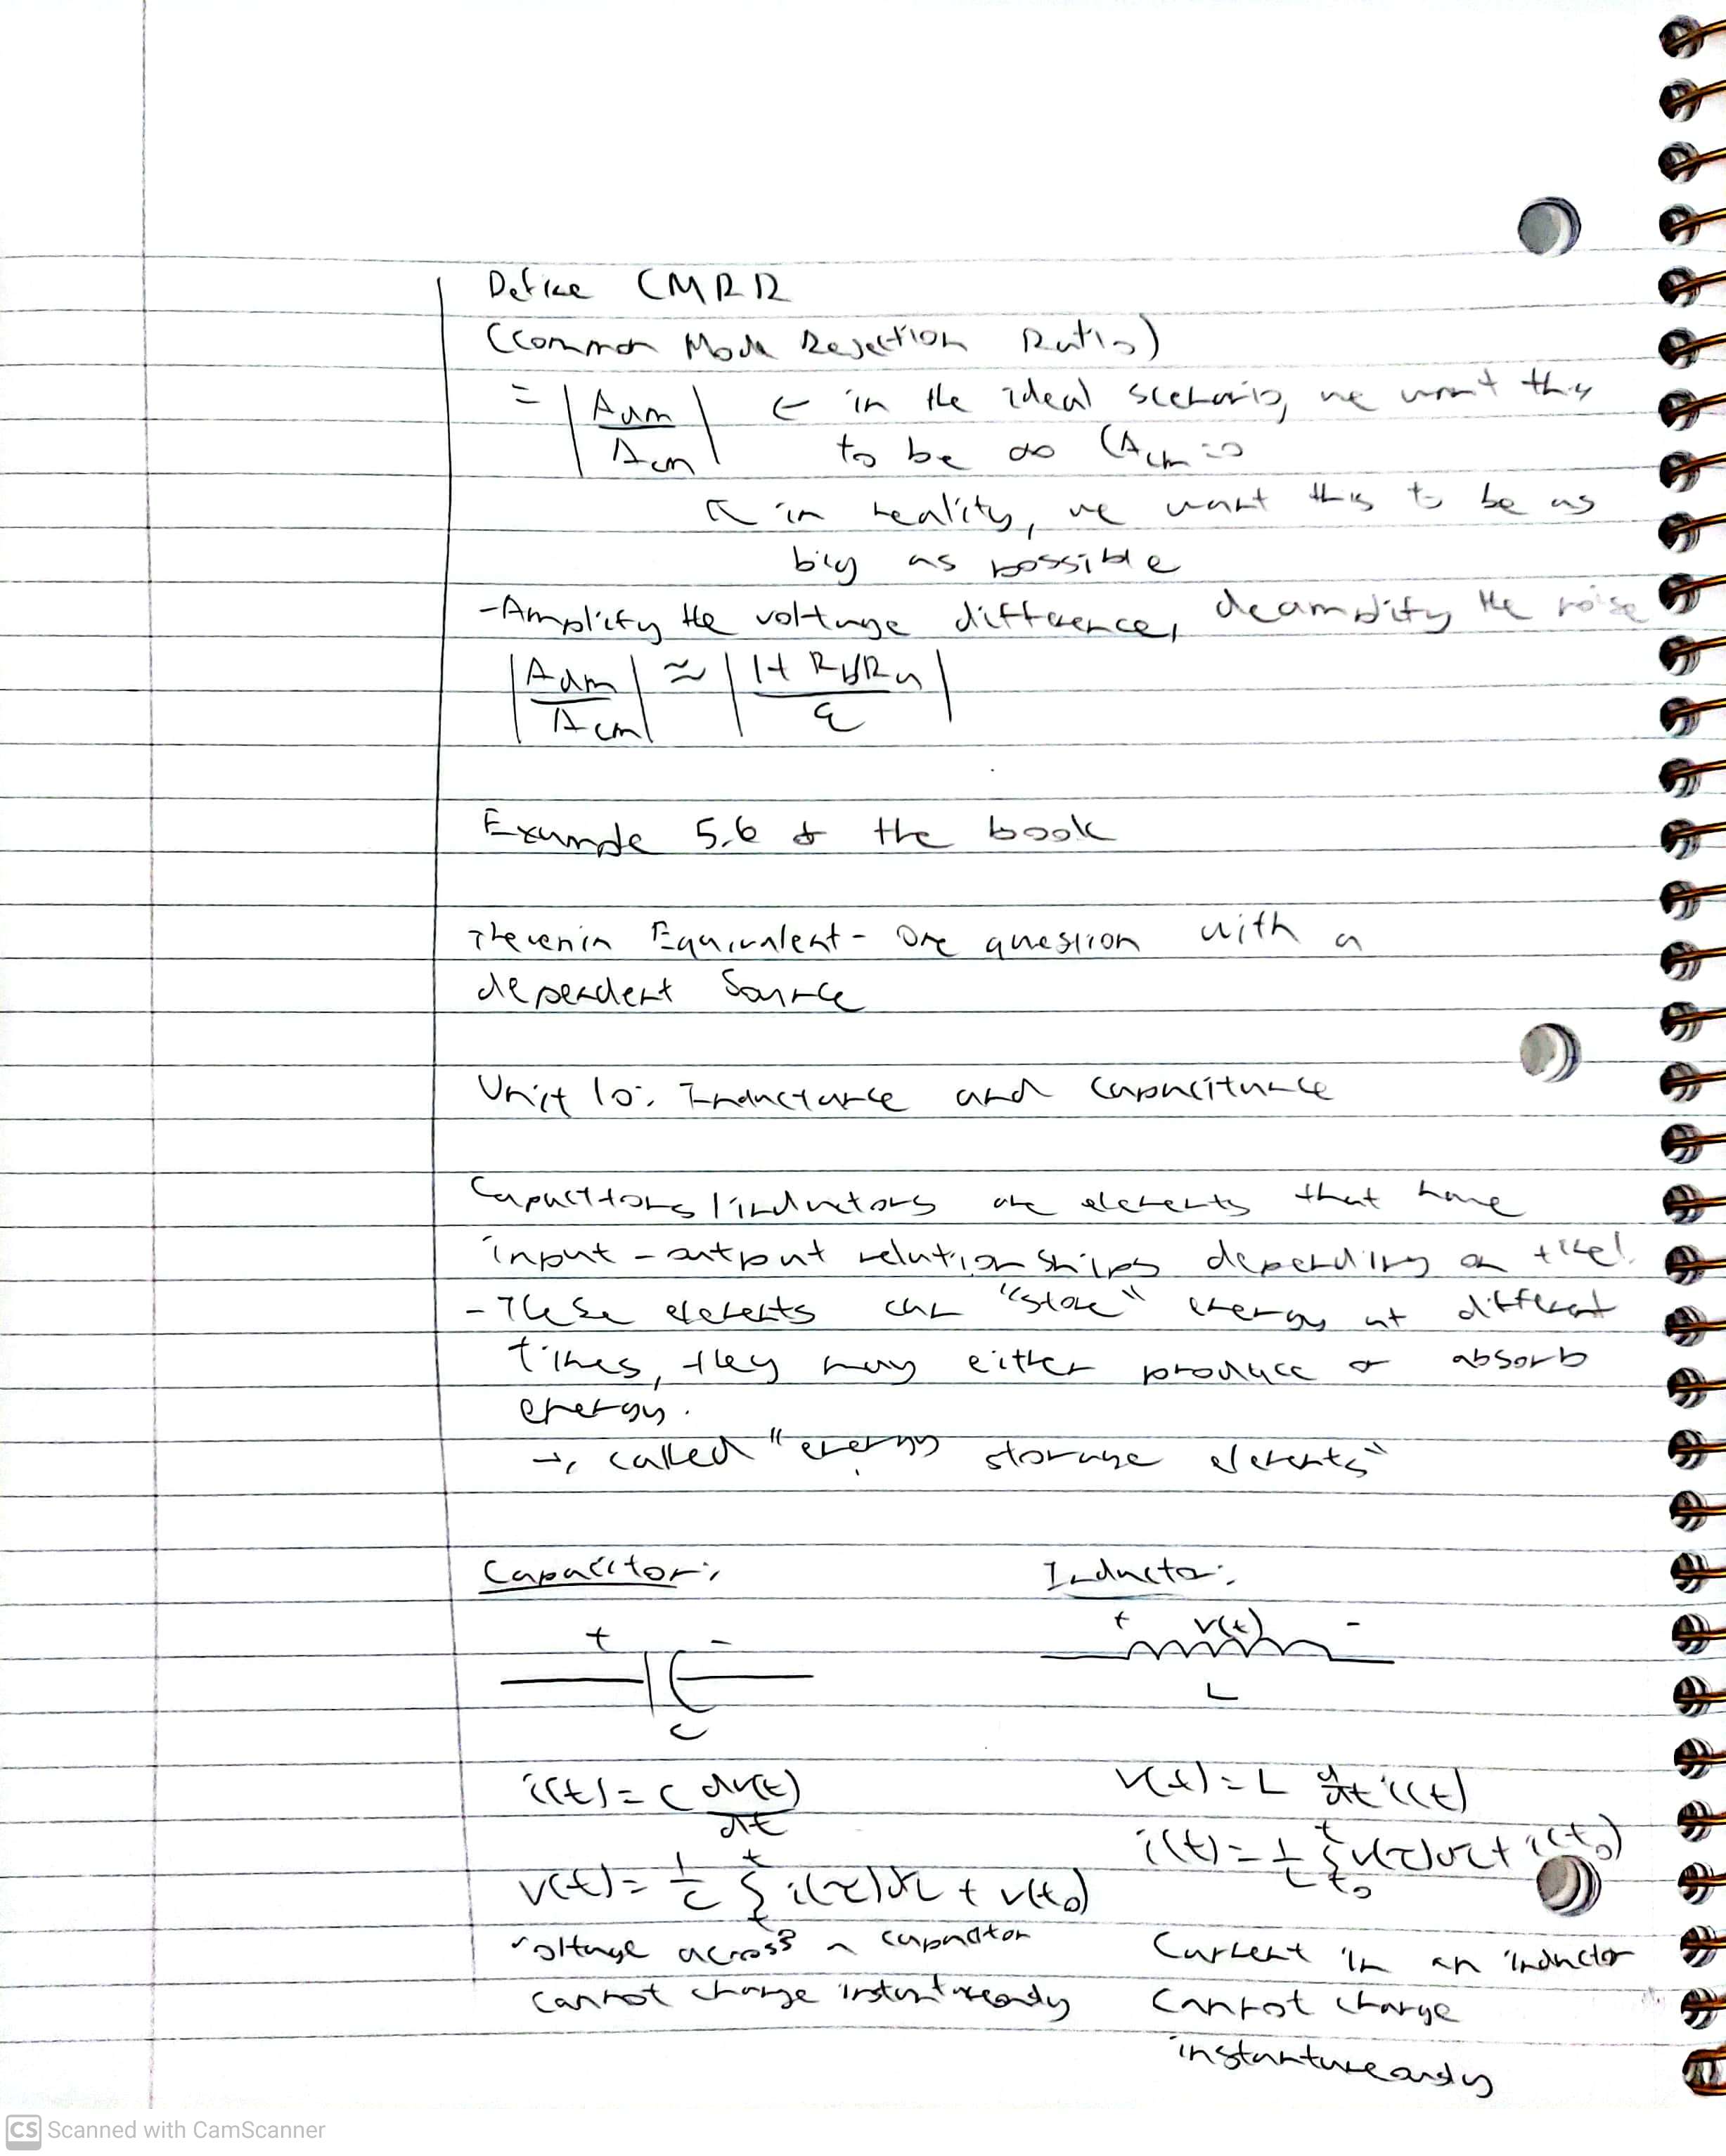 Define CMRR
(Common Mode Rejection Ratio)
= |Adm / Acm| ← in the ideal scenario, we want this
to be ∞ (Acm = 0
↖ in reality, we want this to be as
big as possible
- Amplify the voltage difference, deamplify the noise
|Adm / Acm| ≈ |1 + Rb/Ra / ε|
Example 5.6 of the book
Thevenin Equivalent - One question with a
dependent Source
Unit 10: Inductance and Capacitance
Capacitors/inductors are elements that have
input-output relationships depending on time!
- These elements can "store" energy at different
times, they may either produce or absorb
energy.
→ called "energy storage elements"
Capacitor: Inductor:
+ - + v(t) -
C L
i(t) = C dv(t)/dt v(t) = L d/dt i(t)
v(t) = 1/C ∫_{t0}^{t} i(τ)dτ + v(t0) i(t) = 1/L ∫_{t0}^{t} v(τ)dτ + i(t0)
Voltage across a capacitor Current in an inductor
cannot change instantaneously cannot change
instantaneously
CS Scanned with CamScanner